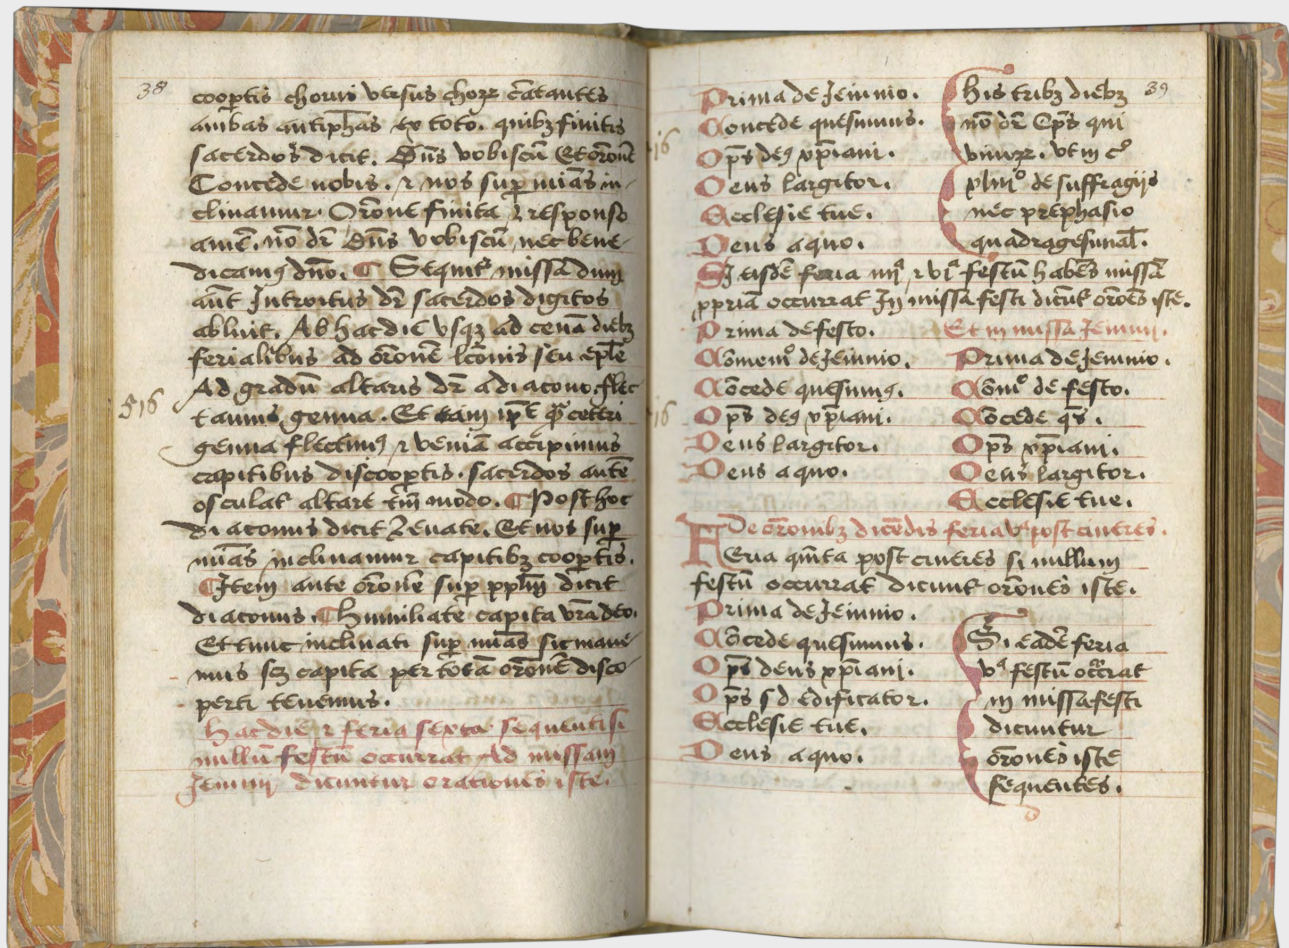 38
cooꝑtis choris versus choꝝ cātantes
ambas antiph̄as ex toto. quibꝫ finitis
sacerdos dicit. Dn̄s vobiscū Et orōnē
Concede nobis. ⁊ nos suꝑ mīas in-
clinamur. Orōne finita ⁊ responso
amē. nō dr̄ Dn̄s vobiscū, nec bene-
dicamꝰ dn̄o. ¶ Sequit᷑ missa dum
aūt Introitus dr̄ sacerdos digitos
abluit. Ab hac die vsqꝫ ad cenā diebꝫ
ferialibus ad orōnē lcōnis seu epl̄e
Ad gradū altaris dr̄ a diacono. flec-
516
tamus genua. Et tam ip̄e ceteri
genua flectimꝰ ⁊ veniā accipimus
capitibus discooꝑtis. sacerdos autē
osculat᷑ altare modo. ¶ Post hoc
diaconus dicit Leuate. Et nos suꝑ
mīas inclinamur capitibꝫ cooꝑtis.
¶ Item ante orōnē suꝑ pp̄lm̄ dicit
diaconus. ¶ Humiliate capita vr̄a deo.
Et tunc inclinati suꝑ mīas sic mane-
mus sꝫ capita per totā orōnē disco-
perti tenemus.
Hac die ⁊ feria sexta sequenti si
nullū festū occurrat Ad missam
Jeiunij dicuntur orationes iste.
39
Prima de Jeiunio.
Concede quesumus.
16
Op̄s deꝰ xp̄iani.
Deus largitor.
Ecclesie tue.
Deus a quo.
his tribꝫ diebꝫ
nō dr̄ Op̄s qui
viuoꝝ. vt in cº
xliiijº de suffragijs
nec prephasio
quadragesimal̄.
Si eisdē feria iiijª ⁊ viª festū habēs missā
ꝓpriā occurrat In missa festi dicūt᷑ orōēs iste.
Prima de festo.
Cōmemº de Jeiunio.
Cōcede quesumꝰ.
16
Op̄s deꝰ xp̄iani.
Deus largitor.
Deus a quo.
Et in missa Jeiunij.
Prima de Jeiunio.
Cōmº de festo.
Cōcede qs̄.
Op̄s xp̄iani.
Deus largitor.
Ecclesie tue.
De orōnibꝫ dicēdis feria vª post cineres.
Feria quīta post cineres si nullum
festū occurrat dicunt᷑ orōnes iste.
Prima de Jeiunio.
Cōcede quesumus.
Op̄s deus xp̄iani.
Op̄s s d edificator.
Ecclesie tue.
Deus a quo.
Si eadē feria
vª festū occ̄rat
in missa festi
dicuntur
orōnes iste
sequentes.